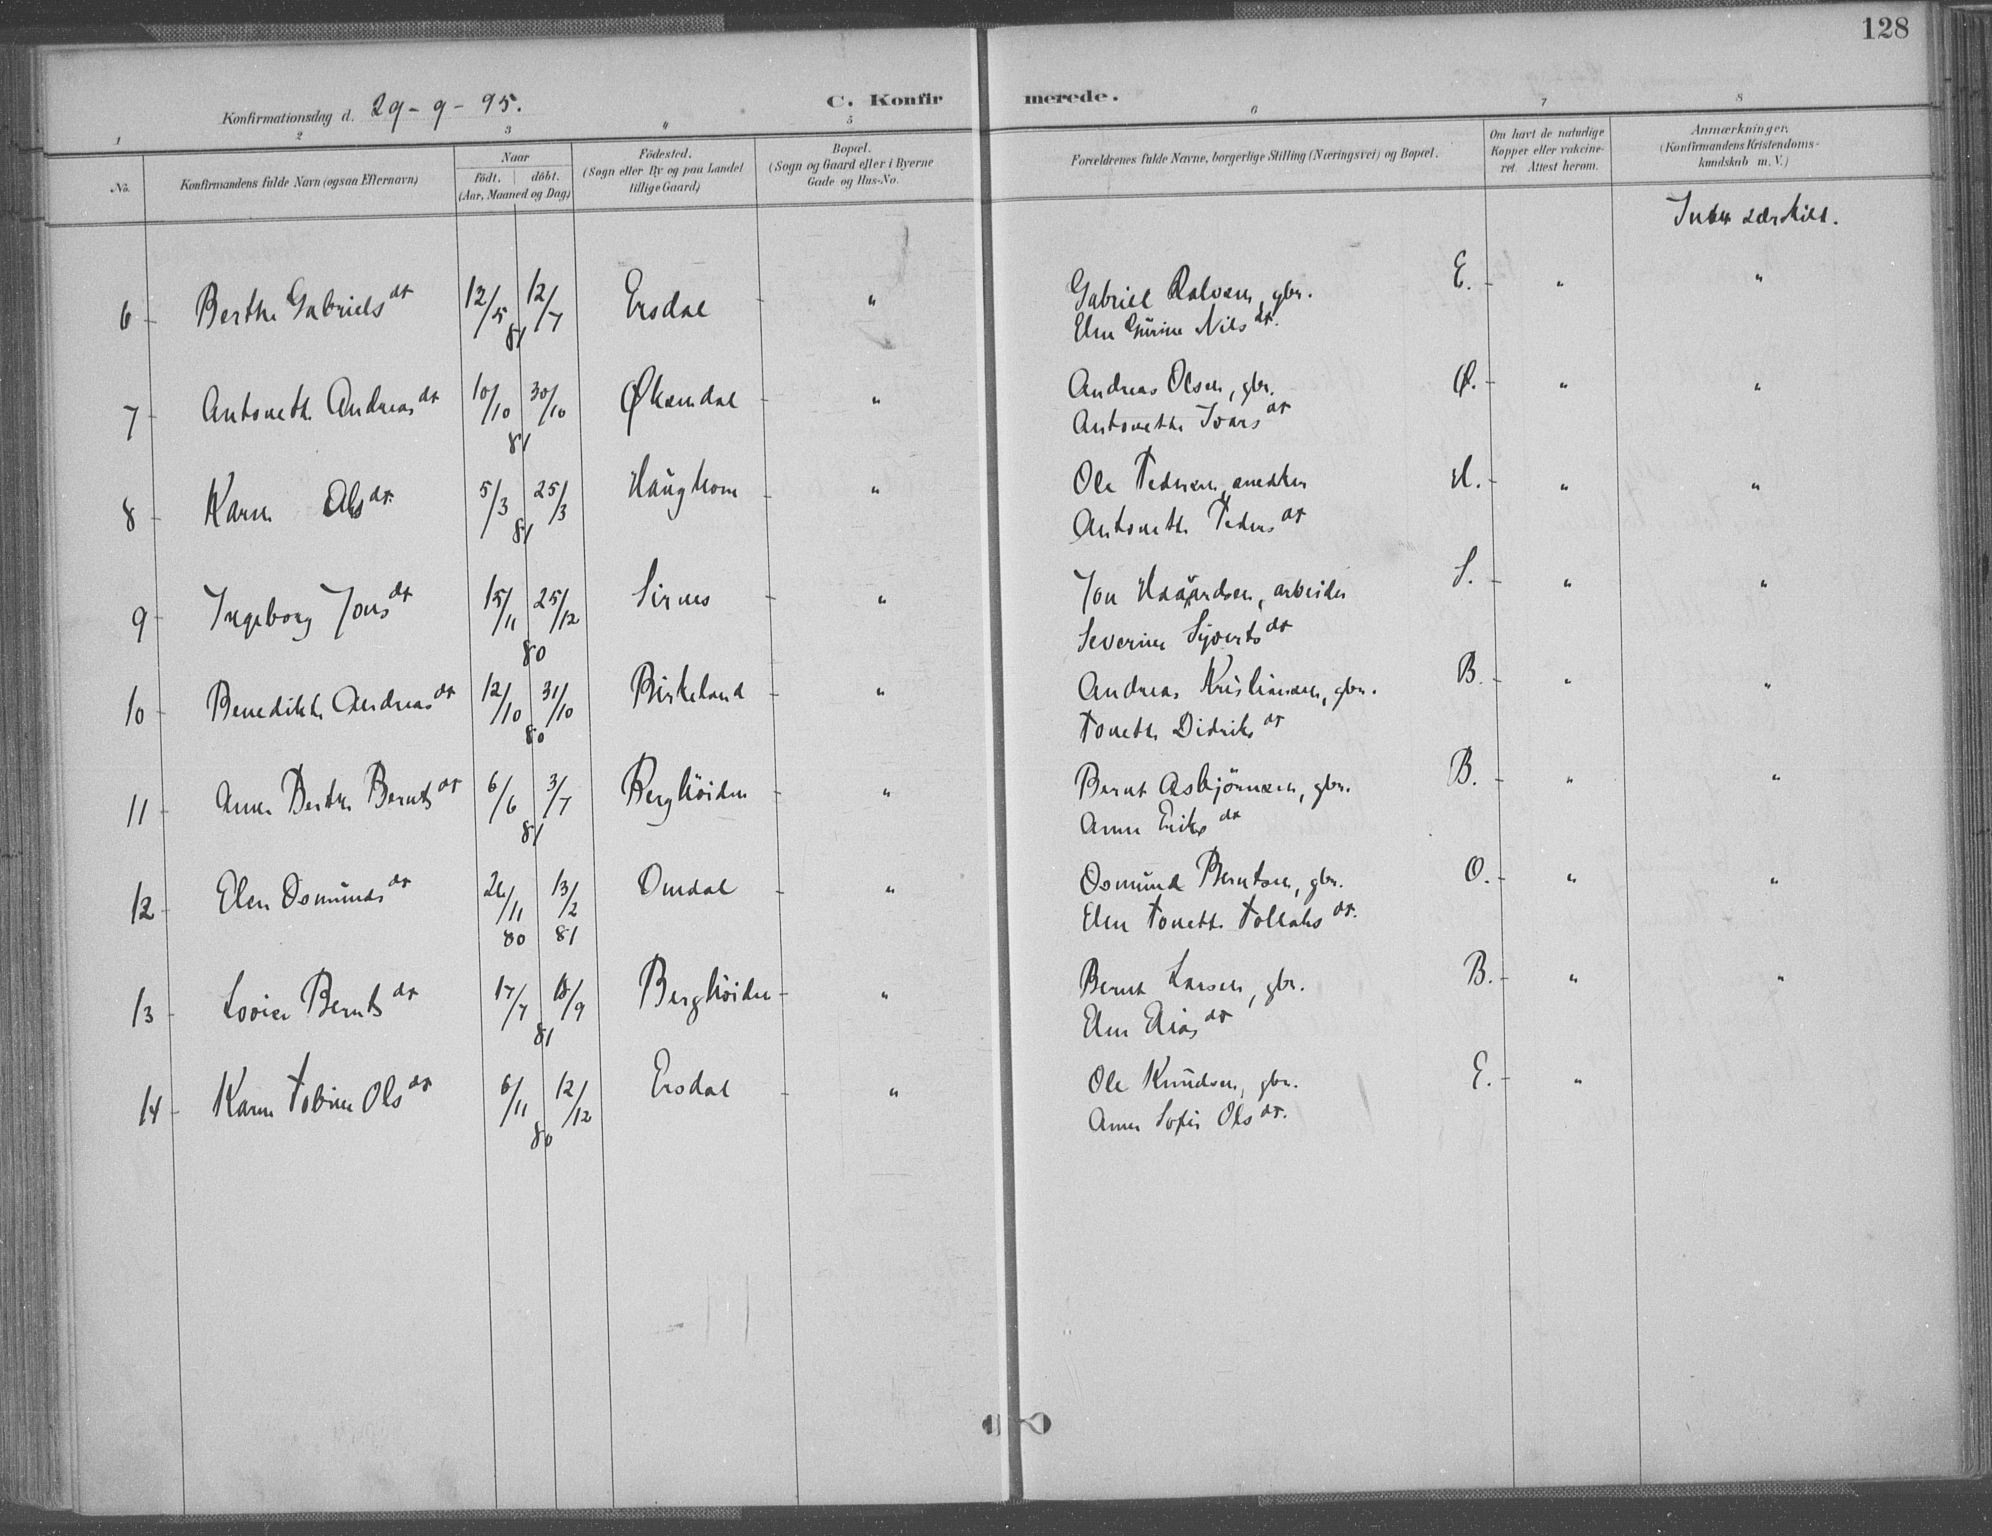 128
Konfirmationsdag d. 29-9-95. C. Konfirmerede.
1 2 3 4 5 6 7 8
No. Konfirmandens fulde Navn (ogsaa Efternavn) Naar födt. döbt. (Aar, Maaned og Dag) Födested. (Sogn eller By og paa Landet tillige Gaard) Bopæl. (Sogn og Gaard eller i Byerne Gade og Hus-No. Forældrenes fulde Navne, borgerlige Stilling (Næringsvei) og Bopæl. Om havt de naturlige Kopper eller vakcineret. Attest herom. Anmærkninger. (Konfirmandens Kristendomskundskab m. V.)
Intet særskilt.
6 Berthe Gabrielsdt 12/5 12/7 81 Ersdal " Gabriel Salvesen, gbr. E. " "
Elen Gurine Nilsdt.
7 Antonette Andreasdt 10/10 30/10 81 Økendal " Andreas Olsen, gbr. Ø. " "
Antonette Ivarsdt
8 Karen Olsdt. 5/3 25/3 81 Haughom " Ole Pedersen, snedker H. " "
Antonette Pedersdt
9 Ingeborg Jonsdt 15/11 25/12 80 Sirnes " Jon Haavardsen, arbeider S. " "
Severine Sjvertsdt
10 Benedikte Andreasdt 12/10 31/10 80 Birkeland " Andreas Kristiansen, gbr. B. " "
Tonette Didriksdt
11 Anne Berthe Berntsdt 6/6 3/7 81 Berghöiden " Bernt Asbjörnsen, gbr. B. " "
Anne Eriksdt
12 Elen Osmundsdt 26/11 80 13/2 81 Omdal " Osmund Berntsen, gbr. O. " "
Elen Tonette Tollaksdt.
13 Lovise Berntsdt 17/7 18/9 81 Berghöiden " Bernt Larsen, gbr. B. " "
Elen Eliasdt
14 Karen Tobine Olsdt 6/11 12/12 80 Ersdal " Ole Knudsen, gbr. E. "
Anne Sofie Olsdt.